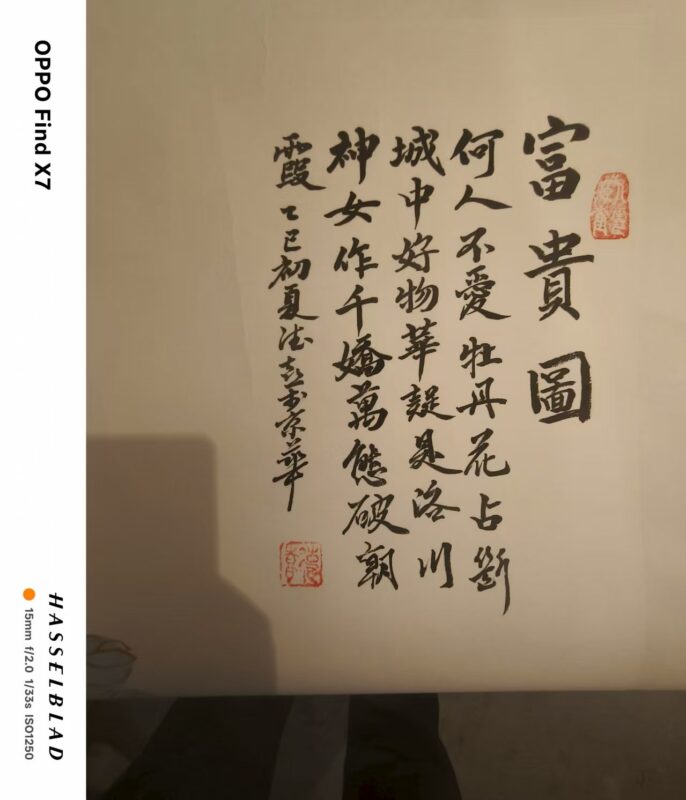 富貴圖
何人不愛牡丹花占斷
城中好物華疑是洛川
神女作千嬌萬態破朝
霞 乙巳初夏京華
OPPO Find X7
HASSELBLAD
15mm f/2.0 1/33s ISO1250